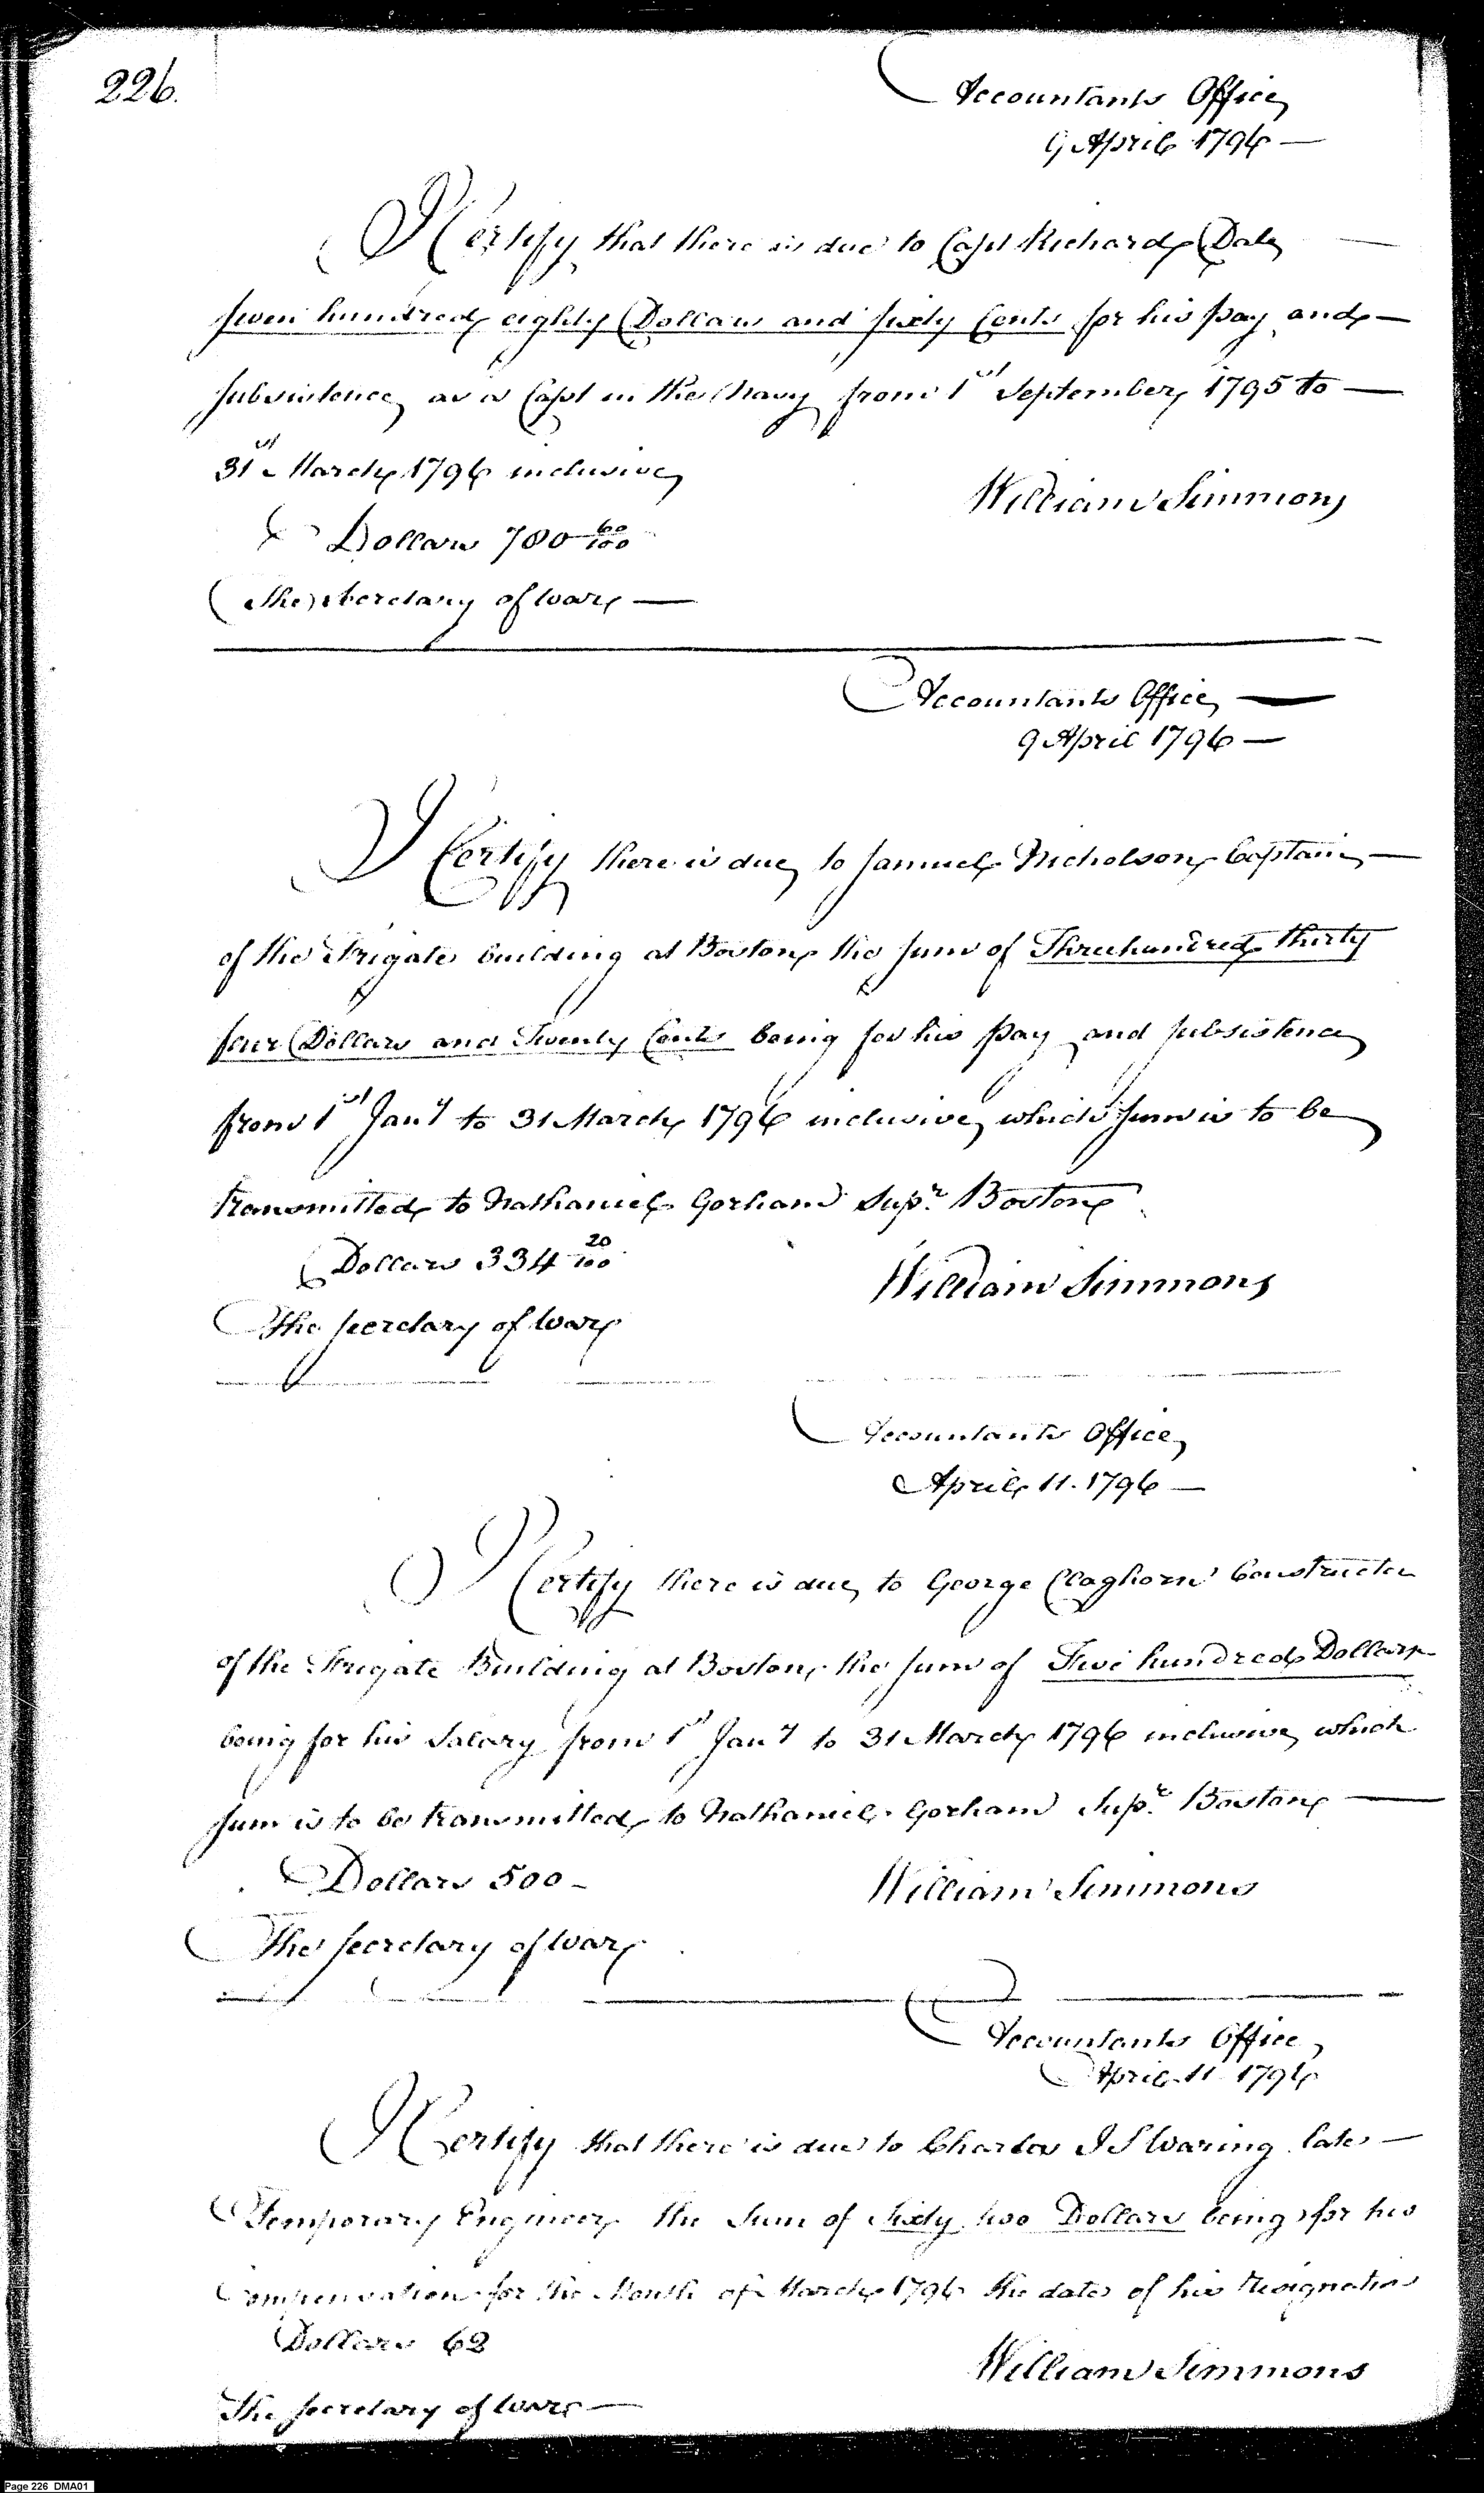 226.
Accountants Office
9 April 1796 —
I Certify that there is due to Capt Richard Dale —
seven hundred eighty Dollars and sixty Cents for his pay and —
subsistence as a Capt in the Navy from 1st September 1795 to —
31st March 1796 inclusive
William Simmons
Dollars 780 60/100
The Secretary of War —
Accountants Office —
9 April 1796 —
I Certify there is due to Samuel Nicholson Captain —
of the Frigate building at Boston the sum of Three hundred thirty
four Dollars and Twenty Cents being for his pay and subsistence
from 1st Jany to 31 March 1796 inclusive which sum is to be
transmitted to Nathaniel Gorham Supr. Boston
Dollars 334 20/100
William Simmons
The Secretary of War
Accountants Office
April 11. 1796 —
I Certify there is due to George Claghorn Constructor
of the Frigate Building at Boston the sum of Five hundred Dollars
being for his Salary from 1st Jany to 31 March 1796 inclusive which
sum is to be transmitted to Nathaniel Gorham Supr. Boston —
Dollars 500 —
William Simmons
The Secretary of War
Accountants Office
April 11 1796
I Certify that there is due to Charles I S Waring late —
Temporary Engineer the Sum of Sixty two Dollars being for his
Compensation for the Month of March 1796 the date of his resignation
Dollars 62
William Simmons
The Secretary of War —
Page 226 DMA01